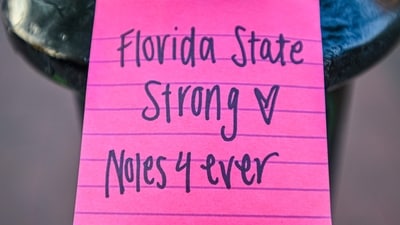 Florida State
Strong ♥
Noles 4 ever